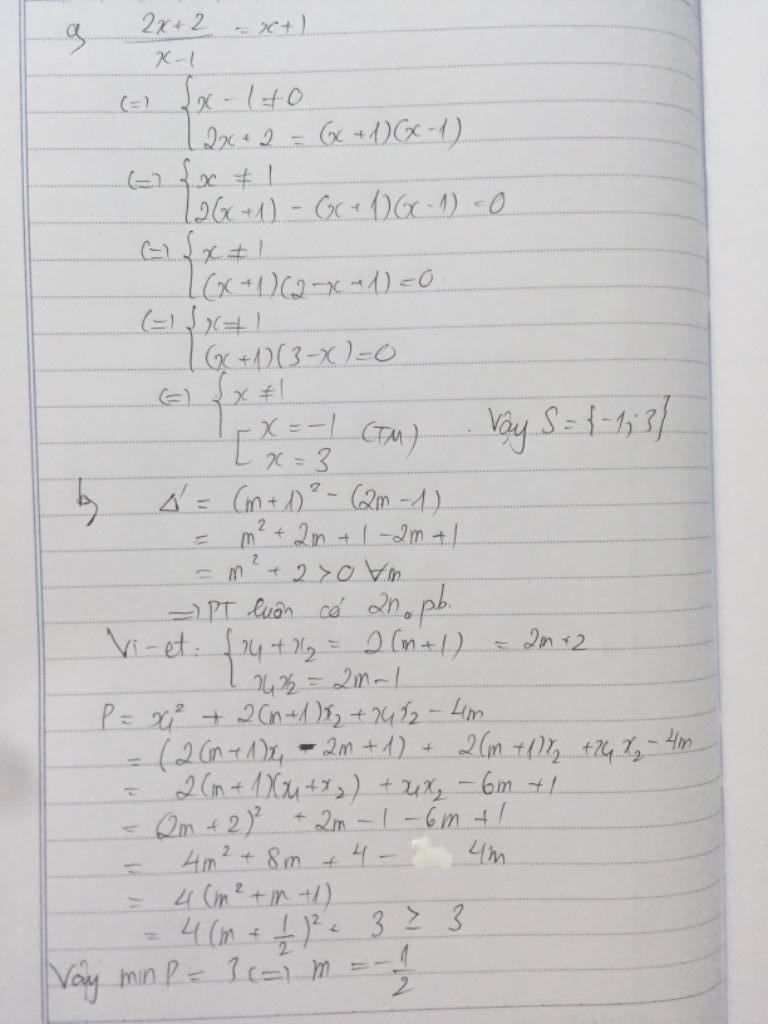 a, \frac{2x+2}{x-1} = x+1
(=) { x - 1 ≠ 0
2x + 2 = (x+1)(x-1)
(=) { x ≠ 1
2(x+1) - (x+1)(x-1) = 0
(=) { x ≠ 1
(x+1)(2-x+1) = 0
(=) { x ≠ 1
(x+1)(3-x) = 0
(=) { x ≠ 1
[ x = -1 (TM) . Vậy S = {-1; 3}
x = 3
b, Δ' = (m+1)² - (2m-1)
= m² + 2m + 1 - 2m + 1
= m² + 2 > 0 ∀m
=> PT luôn có 2 n₀ pb.
Vi-et: { x₁ + x₂ = 2(m+1) = 2m+2
x₁x₂ = 2m-1
P = x₁² + 2(m+1)x₂ + x₁x₂ - 4m
= (2(m+1)x₁ - 2m + 1) + 2(m+1)x₂ + x₁x₂ - 4m
= 2(m+1)(x₁+x₂) + x₁x₂ - 6m + 1
= (2m+2)² + 2m - 1 - 6m + 1
= 4m² + 8m + 4 - 4m
= 4(m² + m + 1)
= 4(m + \frac{1}{2})² + 3 ≥ 3
Vậy min P = 3 (=) m = -\frac{1}{2}